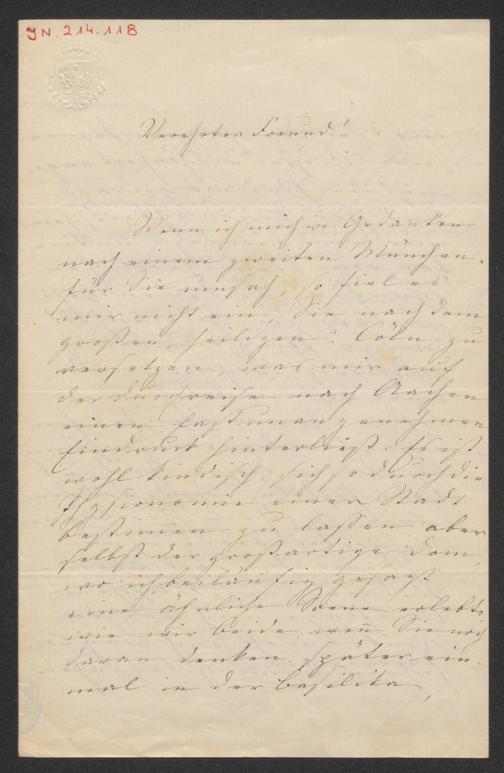 JN. 214.118
Verehrter Freund!
Wenn ich mich in Gedanken
nach einem zweiten München
für Sie umsah, so fiel es
mir nicht ein, Sie nach dem
großen, heiligen! Cöln zu
versetzen, was mir auf
der Durchreise nach Aachen
einen fast unangenehmen
Eindruck hinterließ. Es ist
wohl kindisch sich so durch die
Physionomie einer Stadt
bestimen zu lassen aber
selbst der großartige Dom,
wo ich beiläufig gesagt
eine ähnliche Scene erlebte
wie wir beide, wen Sie noch
daran denken, später ein-
mal in der Basilika,